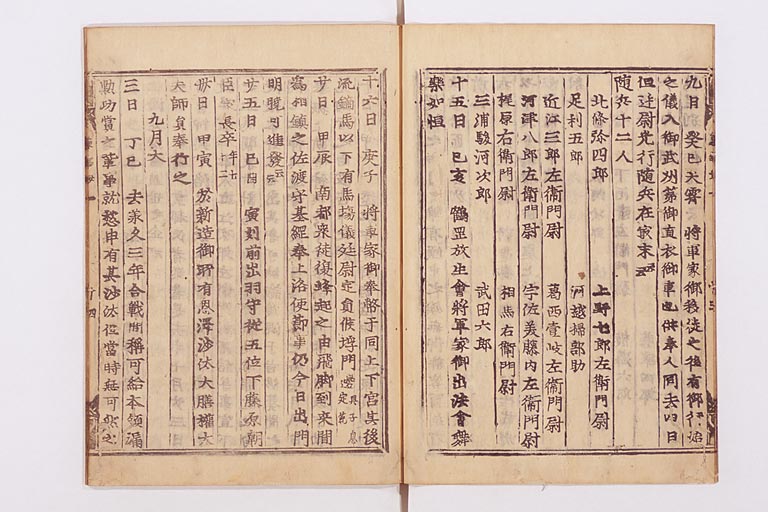 九日 癸巳 天霽 將軍家御移徙之後有御行始
之儀入御武州第御直衣御車也供奉人同去四日
但廷尉先行隨兵在最末云云
隨兵十二人
北條弥四郎 上野七郎左衞門尉
足利五郎 河越掃部助
近江三郎左衞門尉 葛西壹岐左衞門尉
河津八郎左衞門尉 宇佐美藤内左衞門尉
梶原右衞門尉 相馬左衞門尉
三浦駿河次郎 武田六郎
十五日 己亥 鶴岡放生會將軍家御出法會舞
樂如恒
十六日 庚子 將軍家御奉幣于同上下宮其後
流鏑馬以下有馬場儀廷尉定員候埒門
廿日 甲辰 南都衆徒復蜂起之由飛脚到來間
爲相鎭之佐渡守基經奉上洛使節事仍今日出門
明曉可進發云云
廿五日 己酉 寅刻前出羽守從五位下藤原朝
臣家長卒
廿日 甲寅 於新造御所有恩澤沙汰大膳權大
夫師員奉行之
九月大
三日 丁巳 去承久三年合戰間稱可給本領漏
勲功賞之輩事就愁申有其沙汰但當時無可然之